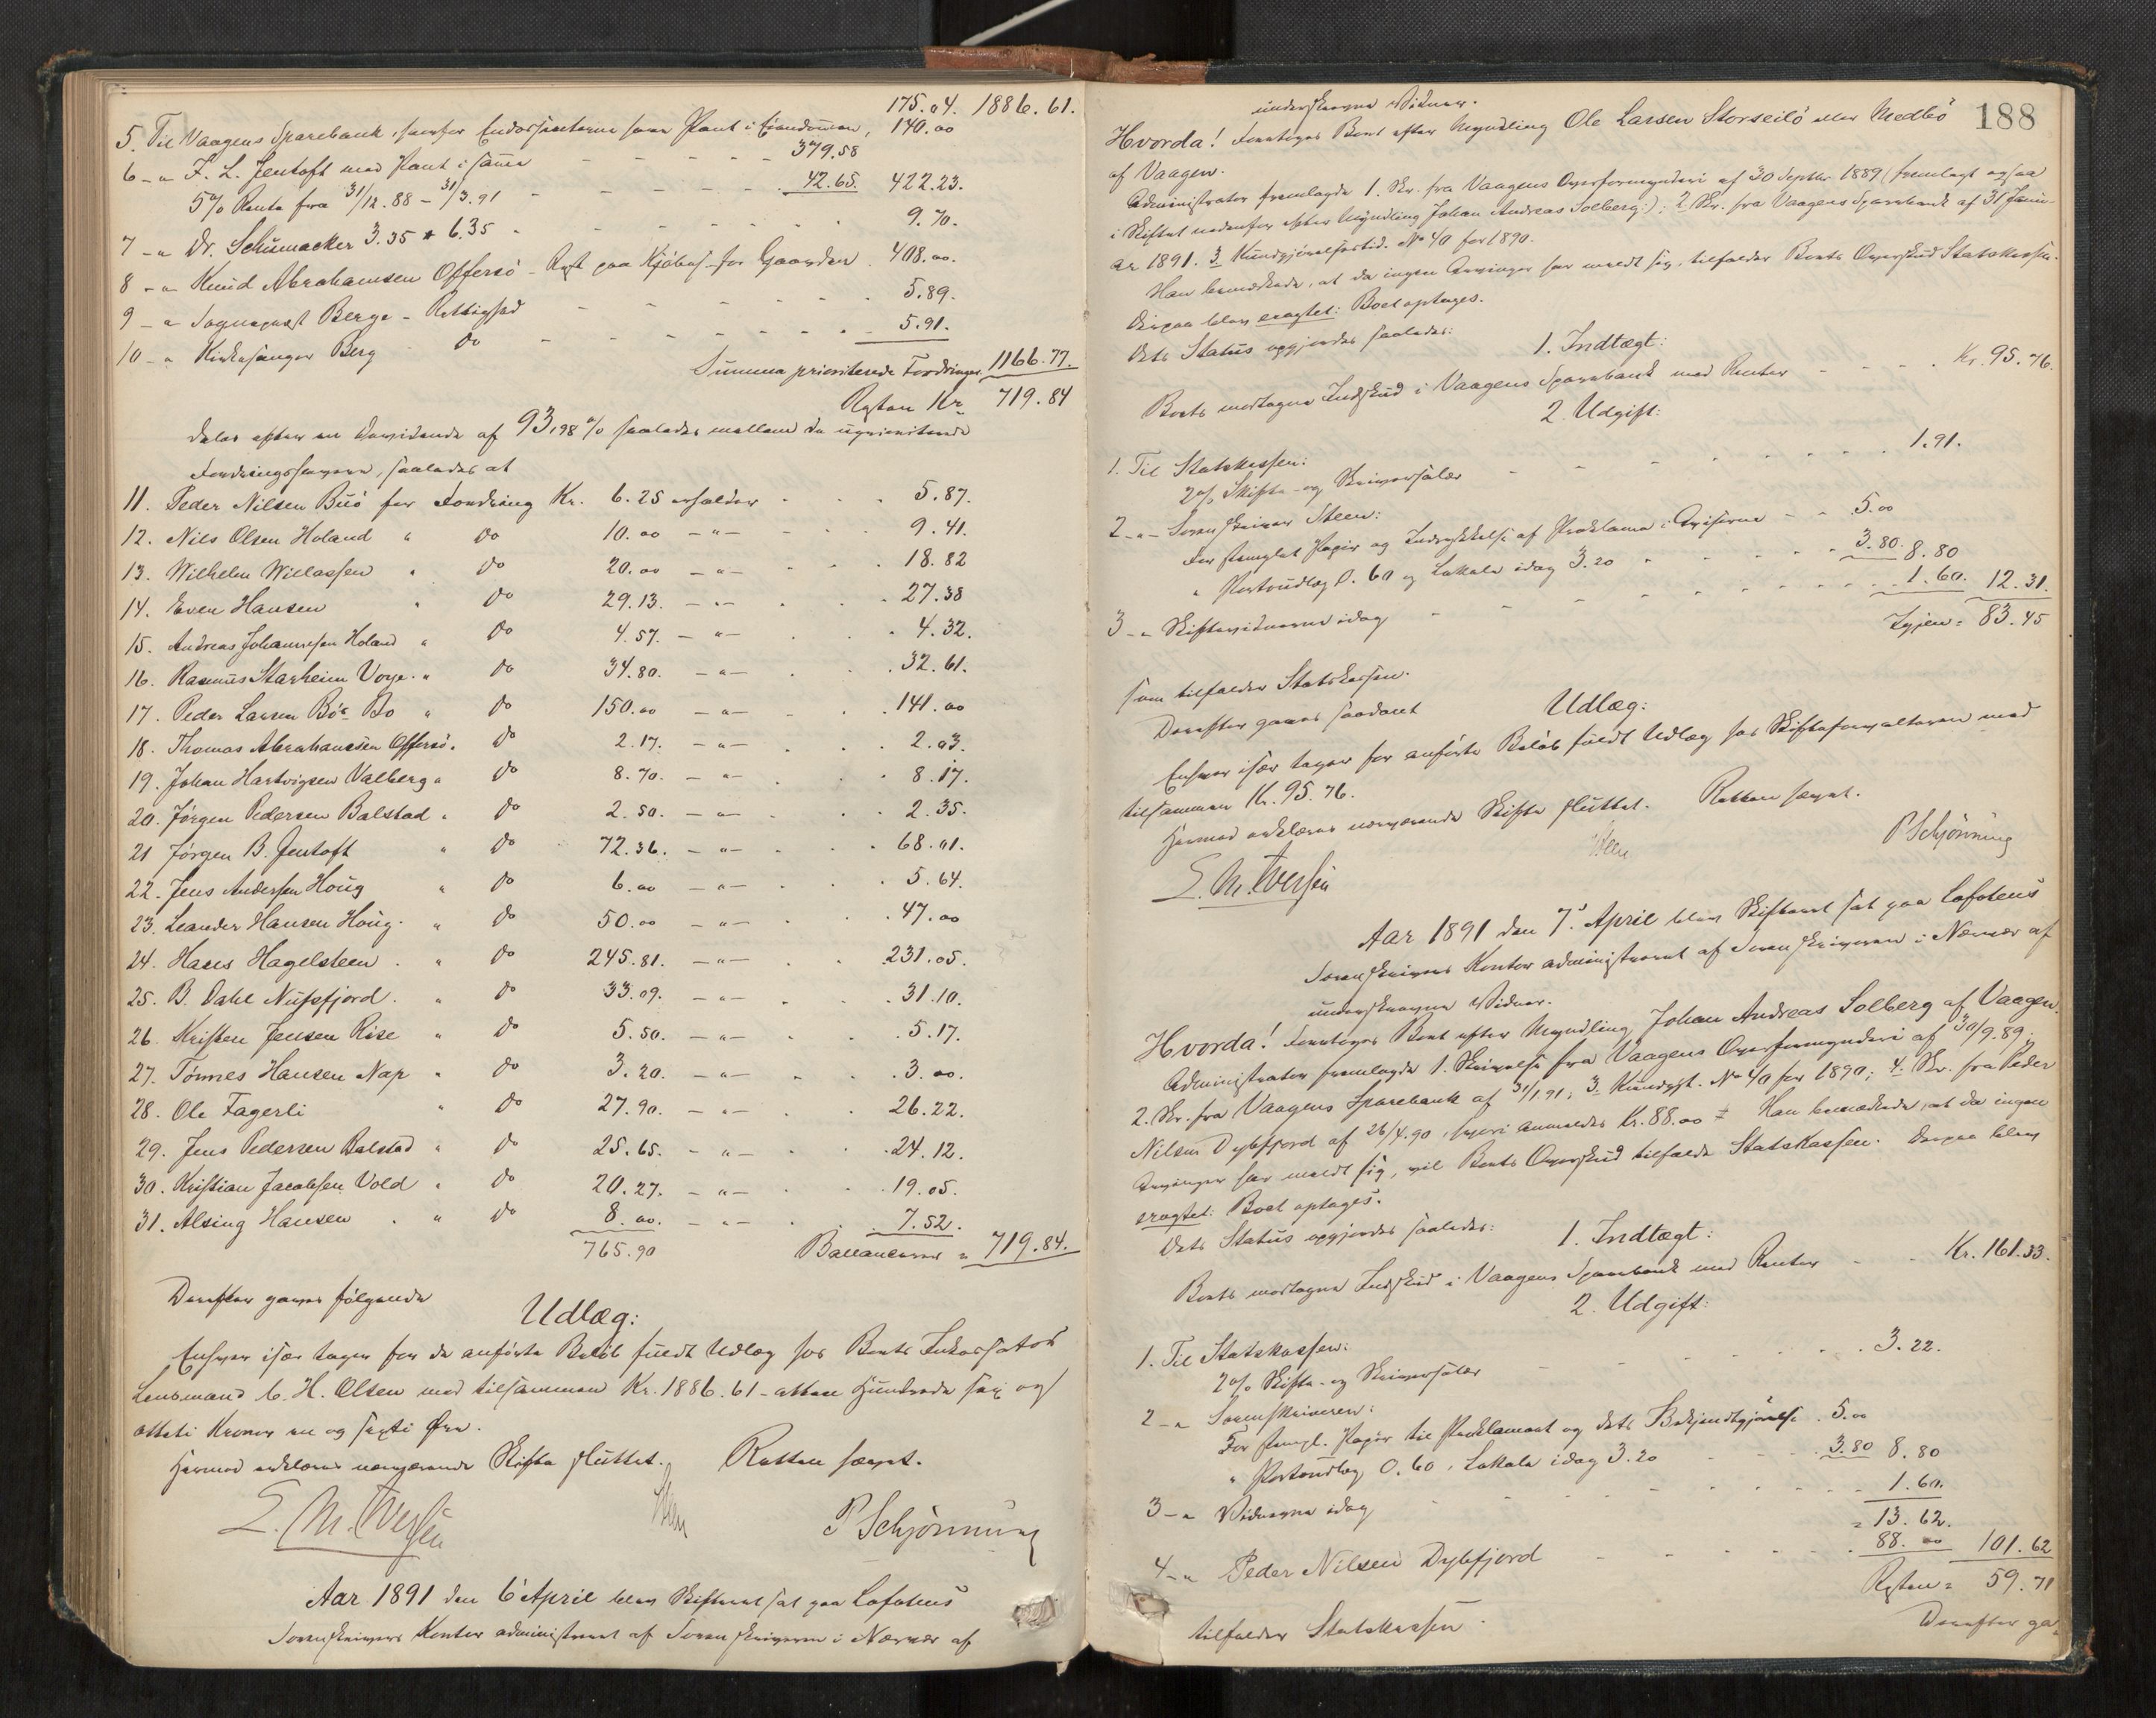 175.04. 1886.61.
5. Til Vaagens Sparebank, som for Endossenterne har Pant i Eiendommen, 140.00
6 -"- F. L. Jentoft med Pant i samme - - - 379.58
5% Rente fra 31/12.88 - 31/3.91 - - - 42.65. 422.23.
7 -"- Dr. Schumacker 3.35 + 6.35 - - - 9.70.
8 -"- Knud Abrahamsen Offersö - Rest paa Kjöbes. for Gaarden. 408.00.
9 -"- Sognepræst Berge - Rettighed - - - 5.89.
10 -"- Kirkesanger Berg do - - - 5.91.
Summa prioriterede Fordringer 1166.77.
Resten Kr. 719.84
deles efter en Dividende af 93,98 % saaledes mellem de uprioriterede
Fordringshavere, saaledes at
11. Peder Nilsen Buö for Fordring Kr. 6.25 erholder - - 5.87.
12. Nils Olsen Holand " do 10.00 -"- - 9.41.
13. Wilhelm Willassen " do 20.00 -"- - 18.82
14. Even Hansen " do 29.13. -"- - 27.38
15. Andreas Johannesen Holand " do 4.57. -"- - 4.32.
16. Rasmus Starheim Voje. " do 34.80. -"- - 32.61.
17. Peder Larsen Bö Bo " do 150.00 -"- - 141.00
18. Thomas Abrahamsen Offersö. do 2.17. -"- - 2.03.
19. Johan Hartvigsen Valberg " do 8.70. -"- - 8.17.
20. Jörgen Pedersen Balstad " do 2.50. -"- - 2.35.
21 Jörgen B. Jentoft " do 72.36. -"- - 68.01.
22. Jens Andersen Houg " do 6.00 -"- - 5.64.
23. Leander Hansen Houg. " do 50.00 -"- - 47.00
24. Hans Hagelsteen . " do 245.81. -"- - 231.05.
25. B. Dahl Nufsfjord. " do 33.09. -"- - 31.10.
26 Kristen Jensen Rise " do 5.50. -"- - 5.17.
27. Tönnes Hansen Nap " do 3.20. -"- - 3.00.
28. Ole Fagerli " do 27.90. -"- - 26.22.
29. Jens Pedersen Balstad " do 25.65. -"- - 24.12.
30. Kristian Jacobsen Vold " do 20.27. -"- - 19.05.
31. Alsing Hansen . " do 8.00. -"- - 7.52.
765.90 Ballancerer = 719.84.
Derefter gaves fölgende
Udlæg:
Enhver især tager for de anförte Belöb fuldt Udlæg hos Boets Inkassator
Lensmand C. H. Olsen med tilsammen Kr. 1886.61 - atten Hundrede sex og
otteti Kroner en og sexti Öre.
Hermed erklæres nærværende Skifte sluttet. Retten hævet.
E. M. Iversen Steen P Schjönning
Aar 1891 den 6 April blev Skifteret sat paa Lofotens
Sorenskrivers Kontor administreret af Sorenskriveren i Nærvær af
188
underskrevne Vidner.
Hvorda! Foretoges Boet efter Myndling Ole Larsen Storseilö eller Medbö
af Vaagen.
Administrator fremlagde 1. Skr. fra Vaagens Overformynderi af 30 Septbr. 1889 (fremlagt ogsaa
i Skiftet nedenfor efter Myndling Johan Andreas Solberg:); 2. Skr. fra Vaagens Sparebank af 31 Janu-
ar 1891. 3 Kundgjörelsestid. No 40 for 1890.
Han bemærkede, at da ingen Arvinger har meldt sig, tilfalder Boets Overskud Statskassen.
Derpaa blev eragtet: Boet optages.
Dets Status opgjordes saaledes:
1. Indtægt:
Boets modtagne Indskud i Vaagens Sparebank med Renter - - - Kr. 95.76.
2. Udgift:
1. Til Statskassen:
2% Skifte- og Skriversalær - - - 1.91.
2 -"- Sorenskriver Steen:
For stemplet Papir og Indrykkelse af Proklama i Aviserne - - 5.00
" Portoudlæg 0.60 og Lokale idag 3.20 - - - 3.80. 8.80
3 -"- Skiftevidnerne idag - - - 1.60. 12.31.
Igjen = 83.45
som tilfalder Statskassen.
Derefter gaves saadant
Udlæg:
Enhver især tager for anförte Belöb fuldt Udlæg hos Skifteforvalteren med
tilsammen Kr. 95.76.
Hermed erklæres nærværende Skifte sluttet. Retten hævet.
E. M. Iversen Steen P Schjönning
Aar 1891 den 7' April blev Skifteret sat paa Lofotens
Sorenskrivers Kontor administreret af Sorenskriveren i Nærvær af
underskrevne Vidner.
Hvorda! Foretoges Boet efter Myndling Johan Andreas Solberg af Vaagen.
Administrator fremlagde 1. Skrivelse fra Vaagens Overformynderi af 30/9.89;
2. Skr. fra Vaagens Sparebank af 31/1.91; 3. Kundgjt. No 40 for 1890; 4. Skr. fra Peder
Nilsen Dybfjord af 26/4.90, hvori anmeldes Kr. 88.00 Han bemærkede, at da ingen
Arvinger har meldt sig, vil Boets Overskud tilfalde Statskassen. Derpaa blev
eragtet: Boet optages.
Dets Status opgjordes saaledes:
1. Indtægt:
Boets modtagne Indskud i Vaagens Sparebank med Renter - - Kr. 161.33.
2. Udgift:
1. Til Statskassen:
2% Skifte- og Skriversalær - - - 3.22.
2 -"- Sorenskriveren:
For stempl. Papir til Proklamaet og dets Bekjendtgjörelse. 5.00
" Portoudlæg 0.60, Lokale idag 3.20 - - 3.80 8.80
3 -"- Vidnerne idag - - - 1.60.
= 13.62.
4 -"- Peder Nilsen Dybfjord - - - 88.00 101.62
Resten = 59.71
tilfalder Statskassen.
Derefter ga-